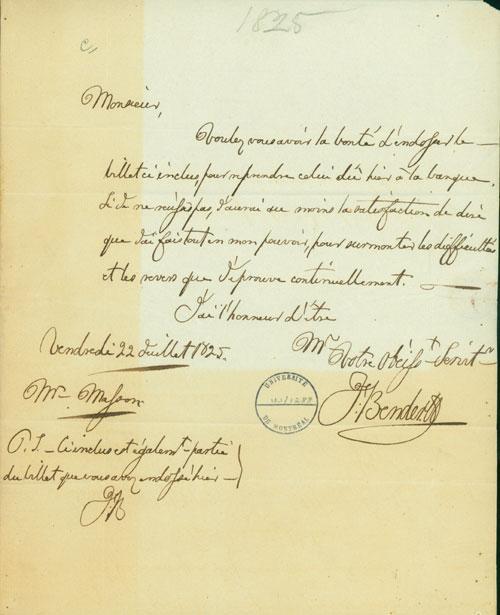 1825
C//
Monsieur,
Voulez vous avoir la bonté d'endosser le
billet ci inclus, pour reprendre celui dû hier à la banque.
Si je ne réussis pas, j'aurai au moins la satisfaction de dire
que j'ai fait tout en mon pouvoir, pour surmonter les difficultés
et les revers que j'éprouve continuellement.
J'ai l'honneur d'être
Mr
Vendredi 22 Juillet 1825.
Votre Obéisst Servitr
Mr Masson
UNIVERSITÉ
DE MONTRÉAL
P. S. – Ci inclus est égalemt partie
du billet que vous avez endossé hier –